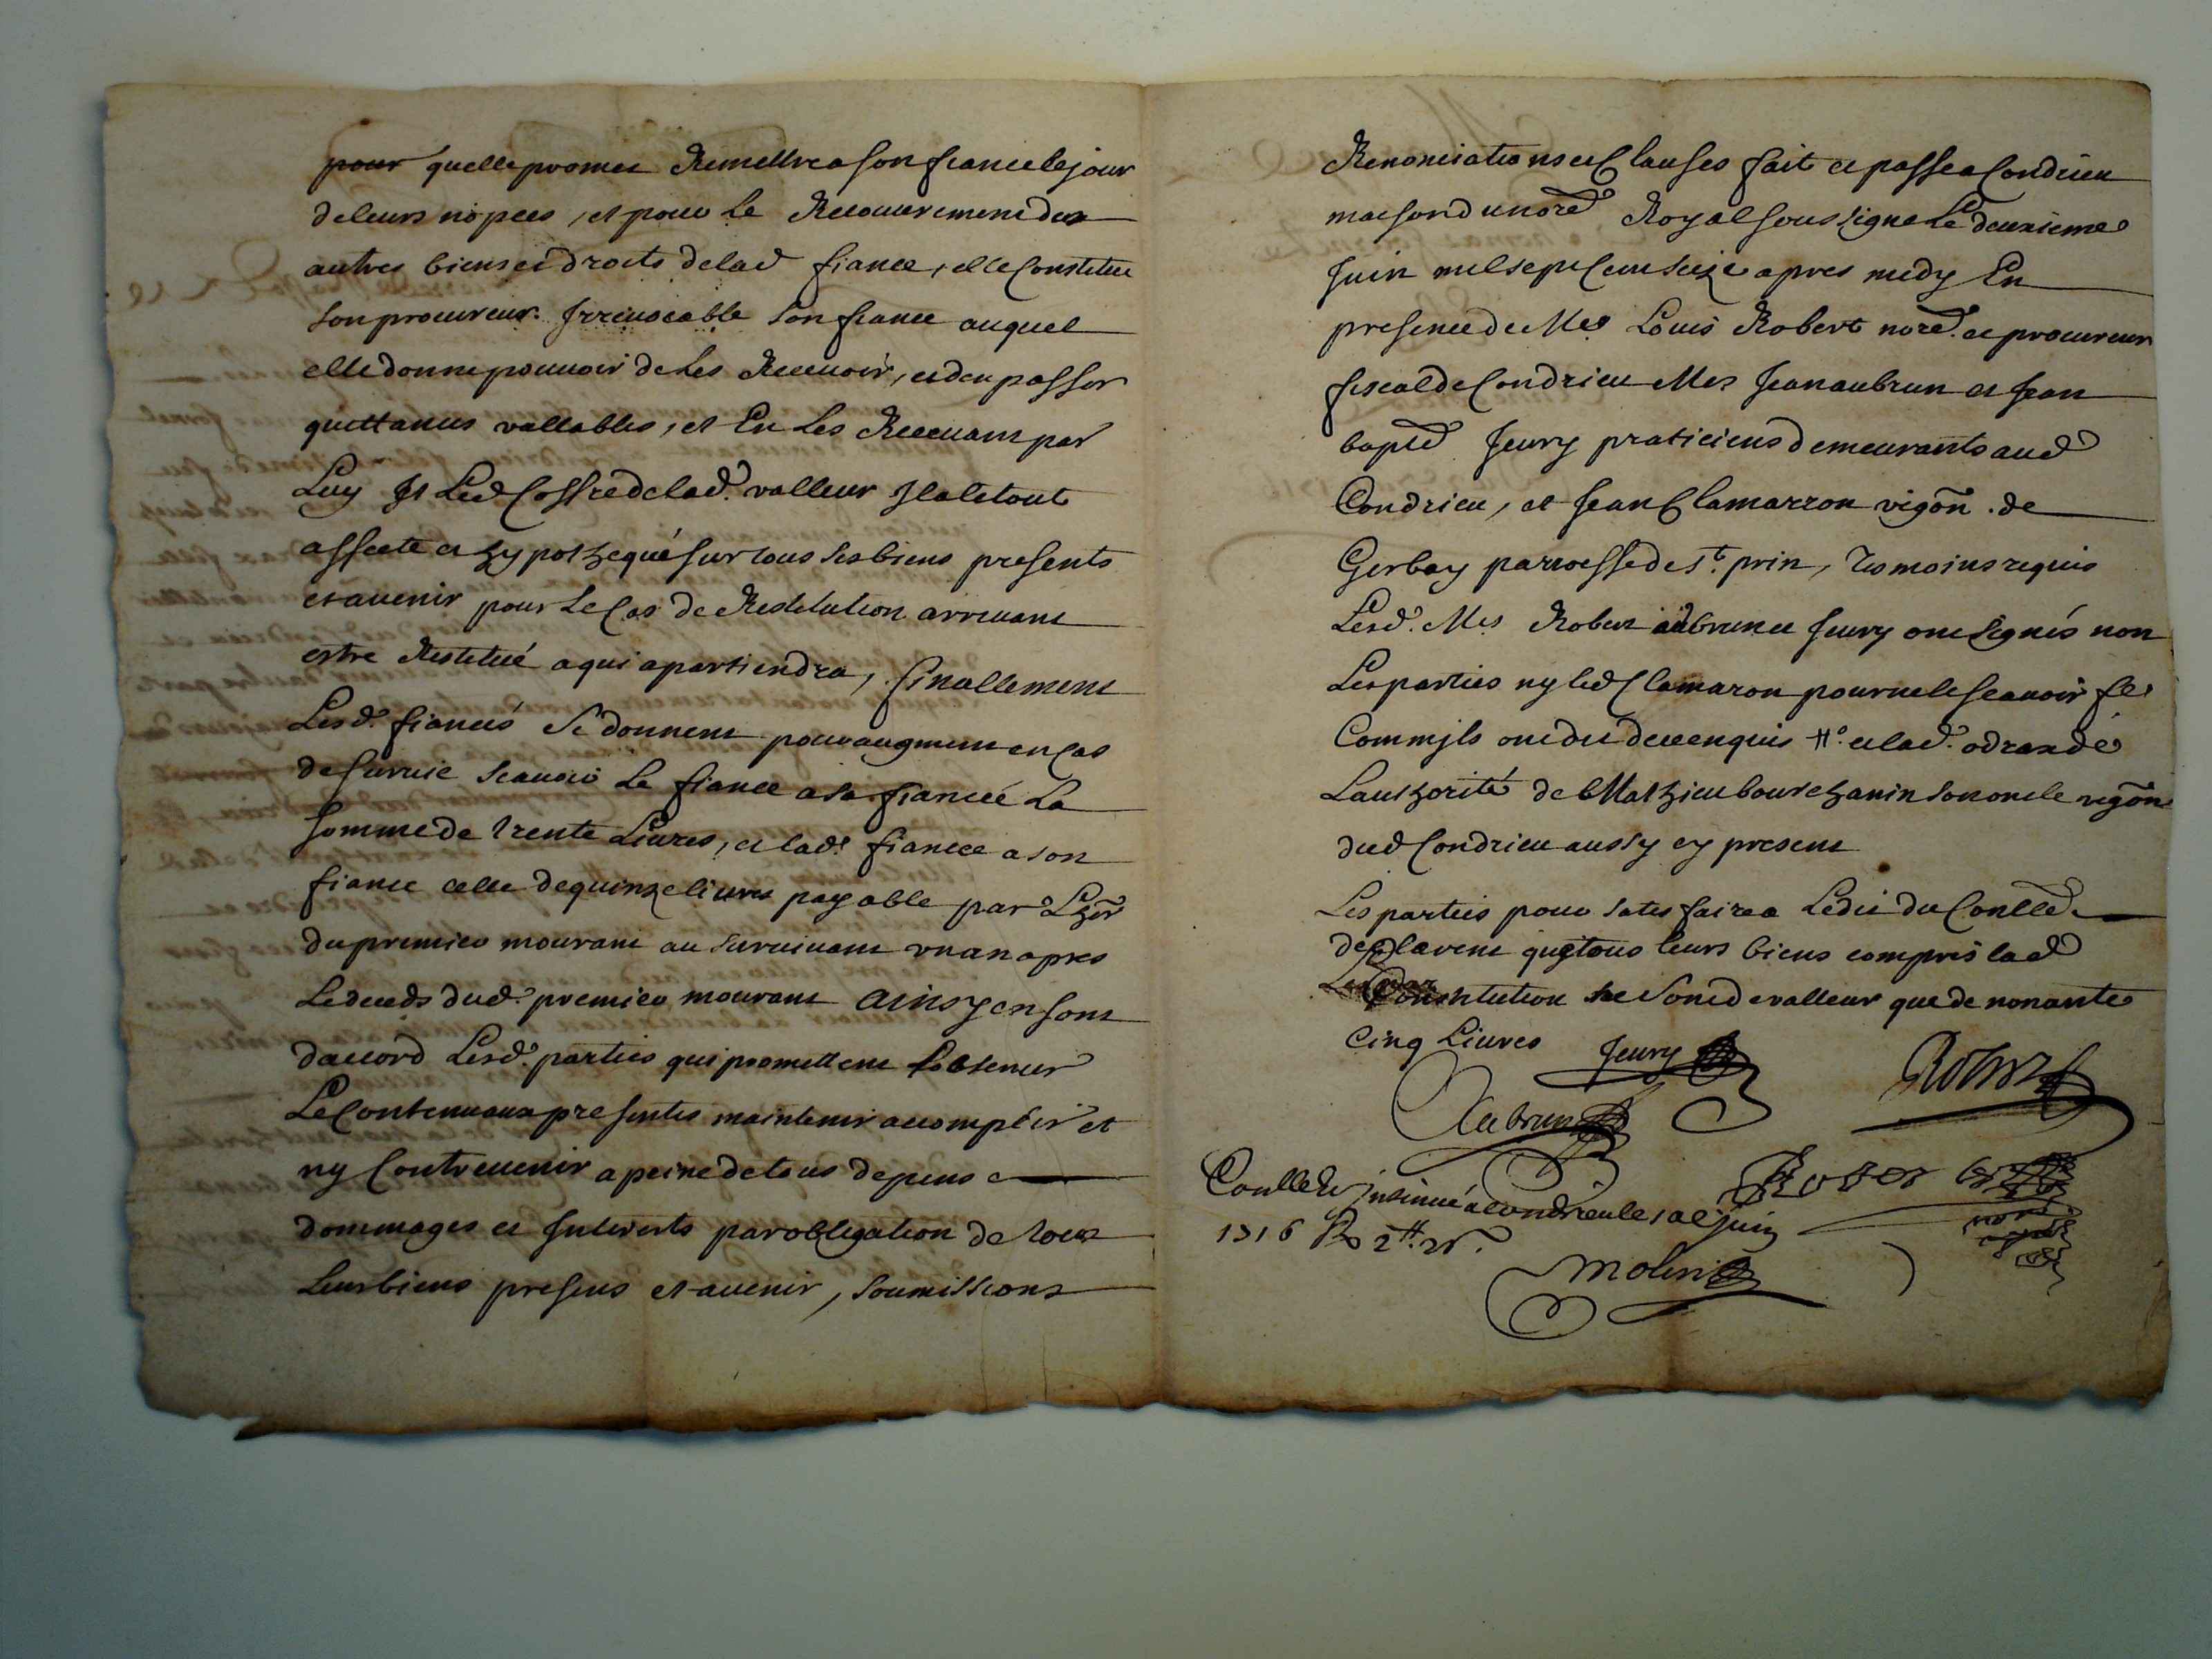 pour quelle promet Remettre a son fiance le jour
de leurs nopces, et pour le Recouvrement des
autres biens et droits de lad fiancé, elle Constitue
son procureur Irrevocable son fiance auquel
elle donne pouvoir de Les Recevoir, et d'en passer
quittances vallables, et En Les Recevant par
Luy et Led Coffre de lad. valleur Il a le tout
affecté et hypothequé sur tous ses biens presents
et avenir pour Le Cas de Restitution arrivant
estre Restitué a qui apartiendra, finallement
Lesd. fiancés Se donnent pour augment en Cas
de survie scavoir Le fiance a sa fiancée La
somme de trente Livres, et lad. fiancée a son
fiance celle de quinze livres payable par L'her
du premier mourant au survivant un an apres
Le deceds dud. premier mourant Ainsy en sont
d'accord Lesd. parties qui promettent observer
Le Contenu aux presentes maintenir accomplir et
ny Contrevenir a peine de tous depens
dommages et Interests par obligation de tous
leurs biens presens et avenir, soumissions
Renonciations et Clauses fait et passé a Condrieu
maison du nore Royal soussigné Le deuxieme
Juin mil sept Cent seize apres midy En
presence de Mes Louis Robert nore. et procureur
fiscal de Condrieu Mes Jean aubrun et Jean
bapte Jeury praticiens demeurants aud
Condrieu, et Jean Clamarron vigon. de
Gerbay parroesse de St. prin, Tesmoins requis
Lesd. Mes Robert aubrun et Jeury ont signés non
Les parties ny led Clamaron pour ne le scavoir fe
Comm ils ont dit de ce enquis #. et lad. odrande
Lauthorité de Mathieu bourchanin son oncle vigon
dud Condrieu aussy cy present
Les parties pour satisfaire a Ledit du Conlle
declarent que tous leurs biens compris lad
Constitution ne sont de valleur que de nonante
Cinq Livres
Jeury
Robert
Aubrun
Conlle et insinué a condrieu le 12e juin
1716 R 2# 2s.
Robert
nore
royal
Molin